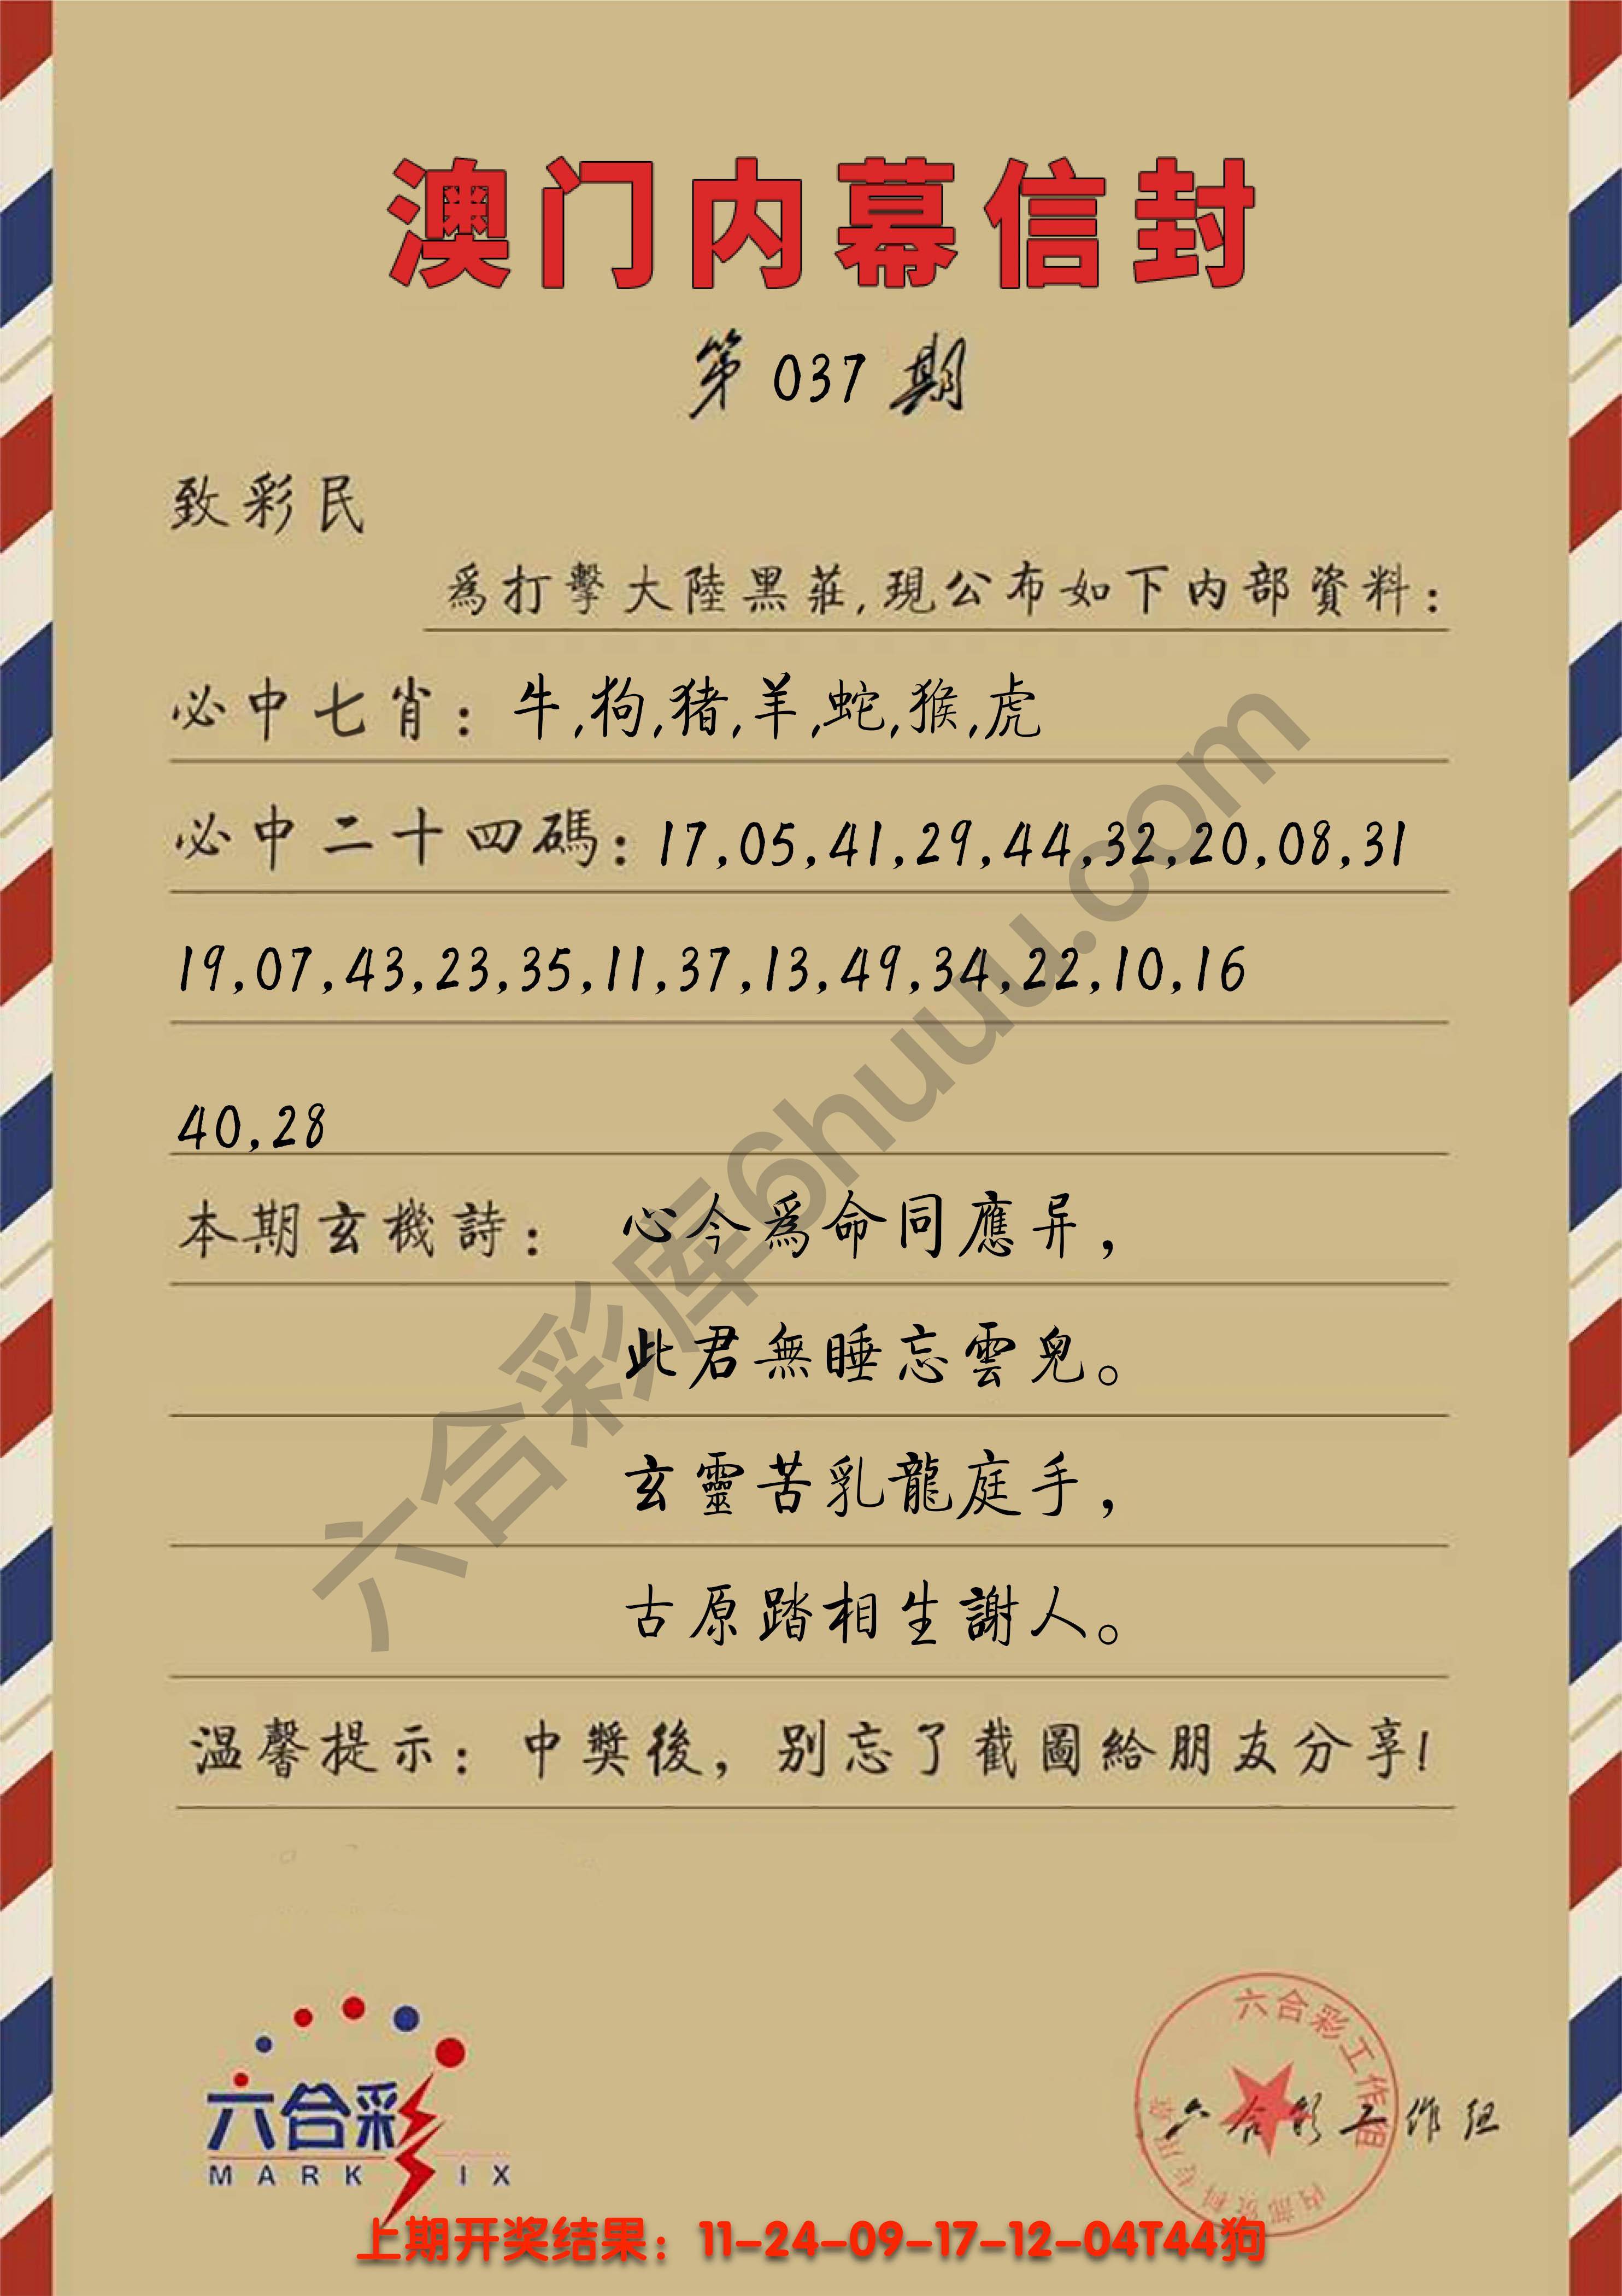 澳门内幕信封
第 037 期
致彩民
爲打擊大陸黑莊,現公布如下内部資料:
必中七肖: 牛,狗,猪,羊,蛇,猴,虎
必中二十四碼: 17,05,41,29,44,32,20,08,31
19,07,43,23,35,11,37,13,49,34,22,10,16
40,28
本期玄機詩: 心今爲命同應异,
此君無睡忘雲皃。
玄靈苦乳龍庭手,
古原踏相生謝人。
温馨提示: 中獎後, 别忘了截圖給朋友分享!
六合彩库6huuu.com
六合彩
MARK IX
六合彩工作组
内部资料专用章
六合彩工作组
上期开奖结果: 11-24-09-17-12-04T44狗